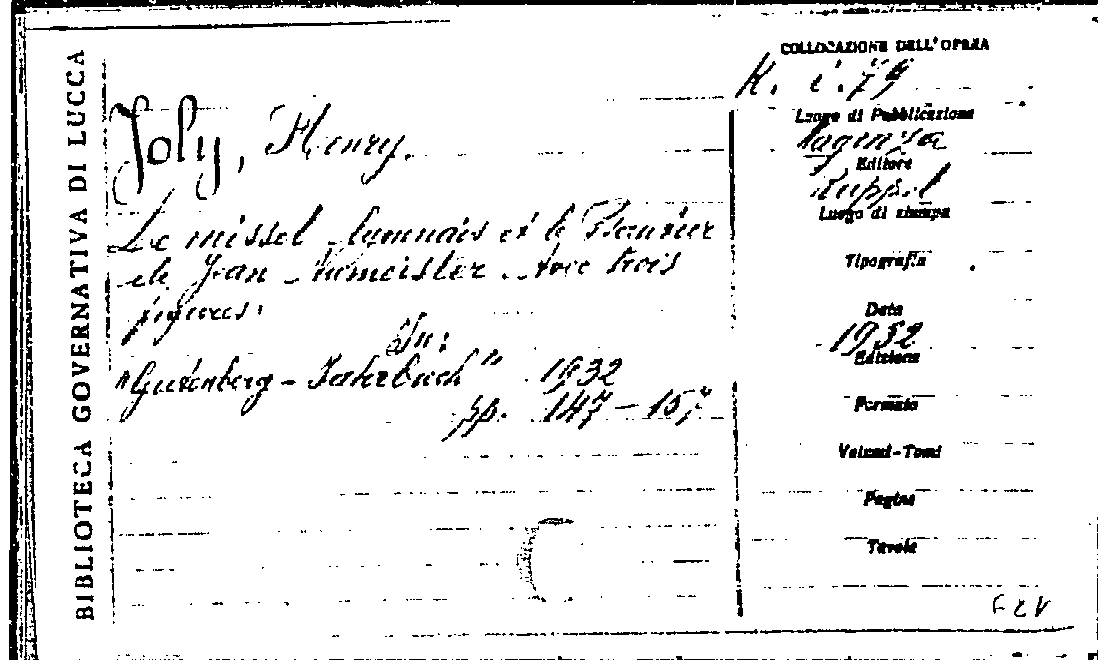 BIBLIOTECA GOVERNATIVA DI LUCCA
Joly, Henry.
Le missel lyonnais et le Psautier
de Jean Numeister. Avec trois
figures.
In:
"Gutenberg-Jahrbuch" 1932
pp. 147-157
COLLOCAZIONE DELL'OPERA
K. i. 79
Luogo di Pubblicazione
Magonza
Editore
Ruppel
Luogo di stampa
Tipografia
Data
1932
Edizione
Formato
Volumi-Tomi
Pagine
Tavole